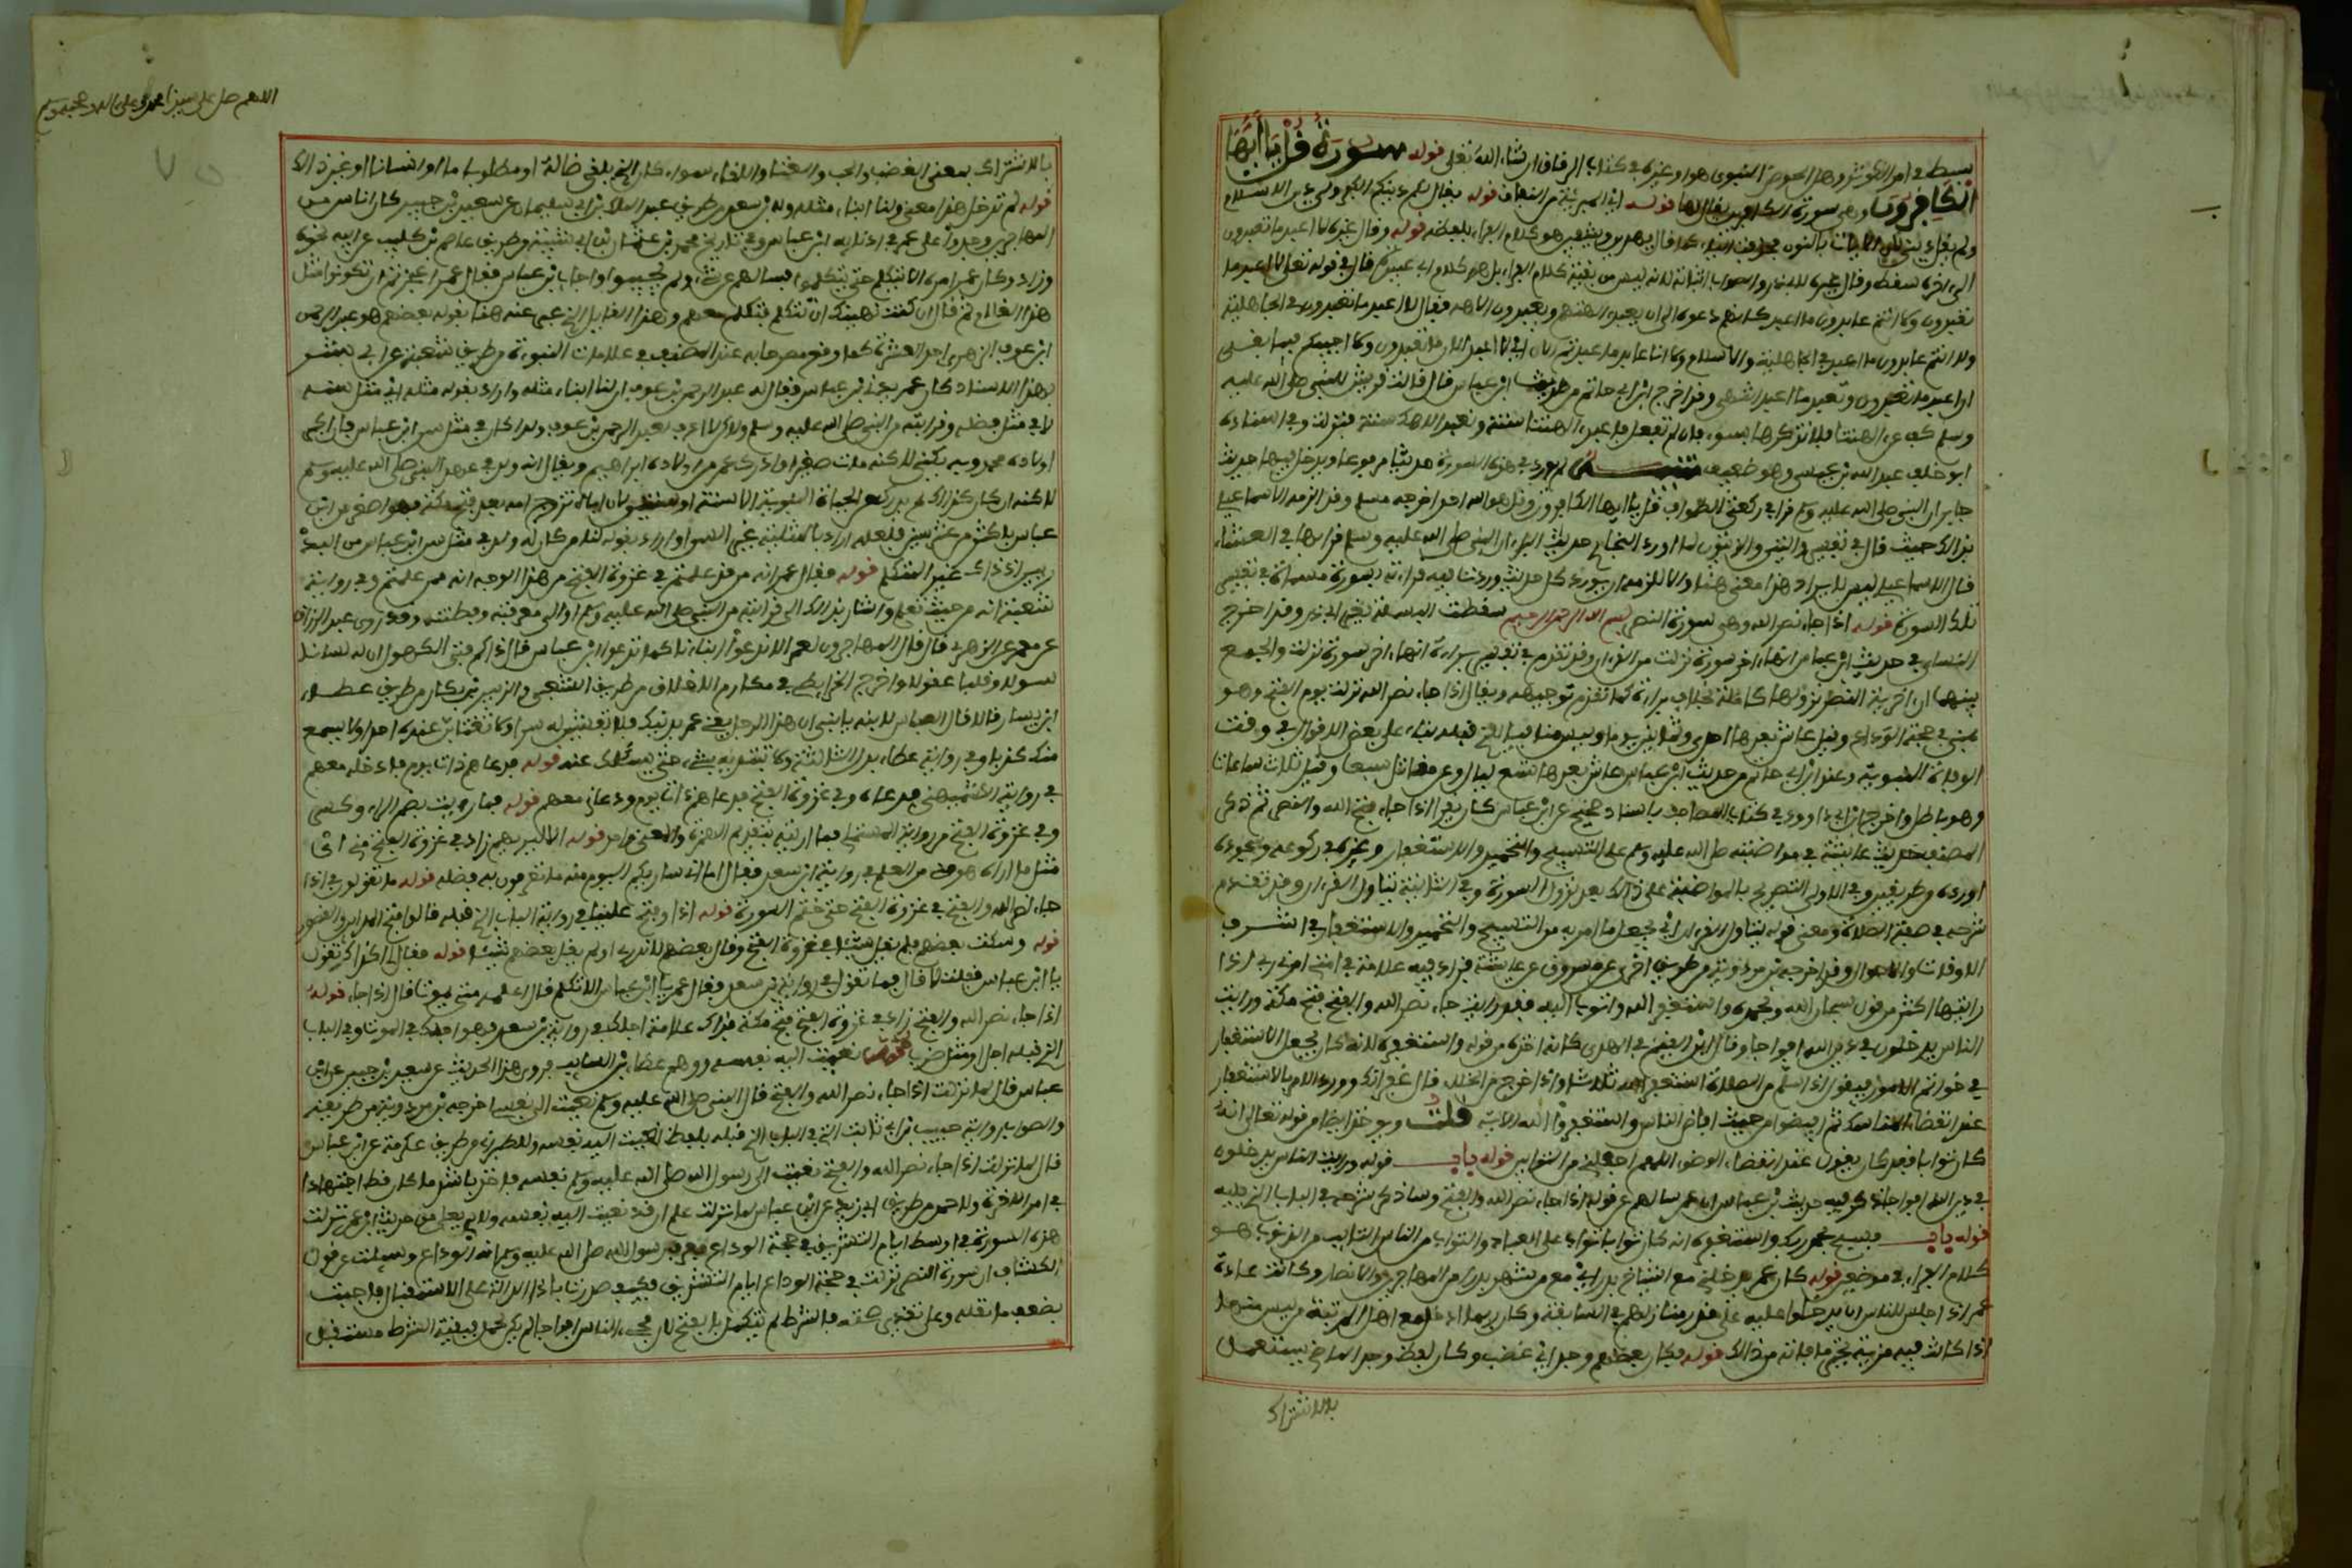 بسط في امر الكوثر وهل الحوض النبوي هو او غيره في كتاب الرقاق ان شاء الله تعلى قوله سورة قل يا أيها
الكافرون وهي سورة الكافرين ويقال لها قوله اي المبرئة من النفاق قوله يقال لكم دينكم الكفر ولي دين الاسلام
ولم يقل ديني لان الايات بالنون فحذفت الياء كما قال يهدين ويشفين هو كلام الفراء بلفظه قوله وقال غيره لا اعبد ما تعبدون
الى اخره سقط وقال غيره لابي ذر والصواب اثباته لانه ليس من بقية كلام الفراء بل هو كلام ابي عبيدة قال في قوله تعلى لا اعبد ما
تعبدون ولا انتم عابدون ما اعبد كانهم دعوه الى ان يعبد الهتهم ويعبدون الاهه فقال لا اعبد ما تعبدون في الجاهلية
ولا انتم عابدون ما اعبد في الجاهلية والاسلام ولا انا عابد ما عبدتم الان اي لا اعبد الان ما تعبدون ولا اجيبكم فيما بقي
ان اعبد ما تعبدون وتعبدون ما اعبد انتهى وقد اخرج ابن ابي حاتم من حديث ابن عباس قال قالت قريش للنبي صلى الله عليه
وسلم كف عن الهتنا فلا تذكرها بسوء فان لم تفعل فاعبد الهتنا سنة ونعبد الاهك سنة فنزلت وفي اسناده
ابو خلف عبد الله بن عيسى وهو ضعيف تنبيه لم يورد في هذه السورة حديثا مرفوعا ويدخل فيها حديث
جابر ان النبي صلى الله عليه وسلم قرا في ركعتي الطواف قل يا ايها الكافرون وقل هو الله احد اخرجه مسلم وقد الزمه الاسماعيلي
بذلك حيث قال في تفسير والتين والزيتون لما اورد البخاري حديث البراء ان النبي صلى الله عليه وسلم قرا بها في العشاء
قال الاسماعيلي ليس لايراد هذا معنى هنا والا للزمه ان يورد كل حديث وردت فيه قراءته بسورة مسماة في تفسير
تلك السورة قوله اذا جاء نصر الله وهي سورة النصر بسم الله الرحمن الرحيم سقطت البسملة لغير ابي ذر وقد اخرج
النساءي في حديث ابن عباس انها اخر سورة نزلت من القران وقد تقدم في تفسير براءة انها اخر سورة نزلت والجمع
بينهما ان اخرية النصر نزولها كاملة بخلاف براءة كما تقدم توجيهه ويقال ان اذا جاء نصر الله نزلت يوم النحر وهو
بمنى في حجة الوداع وقيل عاش بعدها احدى وثمانين يوما وليس منافيا للذي قبله بناء على بعض الاقوال في وقت
الوفاة النبوية وعند ابن ابي حاتم من حديث ابن عباس عاش بعدها تسع ليال وعن مقاتل سبعا وقيل ثلاث ساعات
وهو باطل واخرج ابن ابي داوود في كتاب المصاحف باسناد صحيح عن ابن عباس كان يقرا اذا جاء فتح الله والنصر ثم ذكر
المصنف حديث عايشة في مواضبته صلى الله عليه وسلم على التسبيح والتحميد والاستغفار وغيره في ركوعه وسجوده
اورده من طريقين وفي الاولى التصريح بالمواضبة على ذلك بعد نزول السورة وفي الثانية يتاول القران وقد تقدم
شرحه في صفة الصلاة ومعنى قوله يتاول القران اي يجعل ما امر به من التسبيح والتحميد والاستغفار في اشرف
الاوقات والاحوال وقد اخرجه ابن مردويه من طريق اخرى عن مسروق عن عايشة فزاد فيه علامة في امتي امرني ربي اذا
رايتها اكثر من قول سبحان الله وبحمده واستغفر الله واتوب اليه فقد رايت جاء نصر الله والفتح فتح مكة ورايت
الناس يدخلون في دين الله افواجا وقال ابن القيم في الهدى كانه اخذه من قوله واستغفره لانه كان يجعل الاستغفار
في خواتم الامور فيقول اذا سلم من الصلاة استغفر الله ثلاثا واذا خرج من الخلاء قال غفرانك وورد الامر بالاستغفار
عند انقضاء المناسك ثم افيضوا من حيث افاض الناس واستغفروا الله الاية قلت ويوخذ ايضا من قوله تعالى انه
كان توابا فقد كان يقول عند انقضاء الوضوء اللهم اجعلني من التوابين قوله باب قوله ورايت الناس يدخلون
في دين الله افواجا ذكر فيه حديث ابن عباس ان عمر سالهم عن قوله اذا جاء نصر الله والفتح وساذكر شرحه في الباب الذي يليه
قوله باب فسبح بحمد ربك واستغفره انه كان توابا تواب على العباد والتواب من الناس التايب من الذنب هو
كلام الفراء في موضعين قوله كان عمر يدخلني مع اشياخ بدر اي مع من شهد بدرا من المهاجرين والانصار وكانت عادة
عمر اذا جلس للناس ان يدخلوا عليه على قدر منازلهم في السابقة وكان ربما ادخل مع اهل المرتبة من ليس منهم
اذا كانت فيه مزية تجبر ما فاته من ذلك قوله فكان بعظهم وجد اي غضب وكان لفظ وجد الماضي يستعمل
بالاشتراك
اللهم صل على سيدنا محمد وعلى اله وصحبه وسلم
بالاشتراك بمعنى الغضب والحب والغنى واللقاء سواء كان الذي يلقى ضالة او مطلوبا ما او انسانا او غير ذلك
قوله لم تدخل هذا معنا ولنا ابناء مثله ولابن سعد من طريق عبد الملك بن ابي سليمان عن سعيد بن جبير كان اناس من
المهاجرين وجدوا على عمر في ادنايه ابن عباس وفي تاريخ محمد بن عثمان بن ابي شيبة من طريق عاصم بن كليب عن ابيه نحوه
وزاد وكان عمر امره الا يتكلم حتى يتكلموا فسالهم عن شيء ولم يجيبوا واجاب ابن عباس فقال عمر اعجزتم ان تكونوا مثل
هذا الغلام ثم قال اني كنت نهيتك ان تتكلم فتكلم معهم وهذا القايل الذي عبر عنه هنا بقوله بعضهم هو عبد الرحمن
ابن عوف الزهري احد العشرة كما وقع مصرحا به عند المصنف في علامات النبوة من طريق شعبة عن ابي بشر
بهذا الاسناد كان عمر يدني ابن عباس فقال له عبد الرحمن بن عوف ان لنا ابناء مثله واراد بقوله مثله اي مثل سنه
لا في مثل فضله وقرابته من النبي صلى الله عليه وسلم ولاكن لا اعرف لعبد الرحمن بن عوف ولدا كان في مثل سن ابن عباس فان اكبر
اولاده محمد وبه يكنى لاكنه مات صغيرا وادرك عمر من اولاده ابراهيم ويقال انه ولد في عهد النبي صلى الله عليه وسلم
لاكنه ان كان كذلك لم يدرك من الحياة النبوية الا سنة او سنتين لان اباه تزوج امه بعد فتح مكة فهو اصغر من ابن
عباس باكثر من عشر سنين فلعله اراد بالمثلية غير السن او اراد بقوله لنا من كان له ولد في مثل سن ابن عباس من البدريين
اذ ذاك غير المتكلم قوله فقال عمر انه من قد علمتم في غزوة الفتح من هذا الوجه انه ممن علمتم وفي رواية
شعبة انه من حيث تعلم واشار بذلك الى قرابته من النبي صلى الله عليه وسلم او الى معرفته وفطنته وقد روى عبد الرزاق
عن معمر عن الزهري قال قال المهاجرون لعمر الا تدعو ابناءنا كما تدعو ابن عباس قال ذاكم فتى الكهول ان له لسانا
سولا وقلبا عقولا واخرج الخرايطي في مكارم الاخلاق من طريق الشعبي والزبير بن بكار من طريق عطاء
ابن يسار قالا قال العباس لابنه يا بني ان هذا الرجل يعني عمر يدنيك فلا تفشين له سرا ولا تغتابن عنده احدا ولا يسمع
منك كذبا وفي رواية عطاء بدل الثالثة ولا تبتديه بشيء حتى يسالك عنه قوله فدعاهم ذات يوم فادخله معهم
في رواية الكشميهني فدعاه وفي غزوة الفتح فدعاهم ذات يوم ودعاني معهم قوله فما ريت بضم الراء وكسر
وفي غزوة الفتح من رواية المستملي فما اريته بتقديم الهمزة والمعنى واحد قوله الا ليريهم زاد في غزوة الفتح مني اي
مثل ما راه هو مني من العلم وفي رواية ابن سعد فقال اما اني ساريكم اليوم منه ما تعرفون به فضله قوله ما تقولون في اذا
جاء نصر الله والفتح في غزوة الفتح حتى ختم السورة قوله اذا وفتح علينا في رواية الباب الذي قبله قالوا فتح المداين والقصور
قوله وسكت بعضهم فلم يقل شيئا في غزوة الفتح وقال بعضهم لا ندري او لم يقل بعضهم شيئا قوله فقال لي اكذاك تقول
يا ابن عباس فقلت لا قال فما تقول في رواية ابن سعد فقال عمر يا ابن عباس الا تتكلم قال اعلمه متى يموت قال اذا جاء قوله
اذا جاء نصر الله والفتح زاد في غزوة الفتح فتح مكة فذاك علامة اجلك في رواية ابن سعد فهو اجلك في الموت وفي الباب
الذي قبله اجل او مثل ضرب لمحمد نعيت اليه نفسه ووهم عطاء بن السايب فروى هذا الحديث عن سعيد بن جبير عن ابن
عباس قال لما نزلت اذا جاء نصر الله والفتح قال النبي صلى الله عليه وسلم نعيت الى نفسي اخرجه ابن مردويه من طريقه
والصواب رواية حبيب بن ابي ثابت التي في الباب الذي قبله بلفظ نعيت اليه نفسه وللطبري من طريق عكرمة عن ابن عباس
قال لما نزلت اذا جاء نصر الله والفتح نعيت الى رسول الله صلى الله عليه وسلم نفسه فاخذ باشد ما كان قط اجتهادا
في امر الاخرة ولاحمد من طريق ابي رزين عن ابن عباس لما نزلت علم ان قد نعيت اليه نفسه ولابي يعلى من حديث ابن عمر نزلت
هذه السورة في اوسط ايام التشريق في حجة الوداع فعرف رسول الله صلى الله عليه وسلم انه الوداع وسيلت عن قول
الكشاف ان سورة النصر نزلت في حجة الوداع ايام التشريق فكيف صدرت باذا الدالة على الاستقبال فاجبت
بضعف ما نقله وعلى تقدير صحته فالشرط لم يتكمل بالفتح لان مجيء الناس افواجا لم يكن كمل فبقية الشرط مستقبل